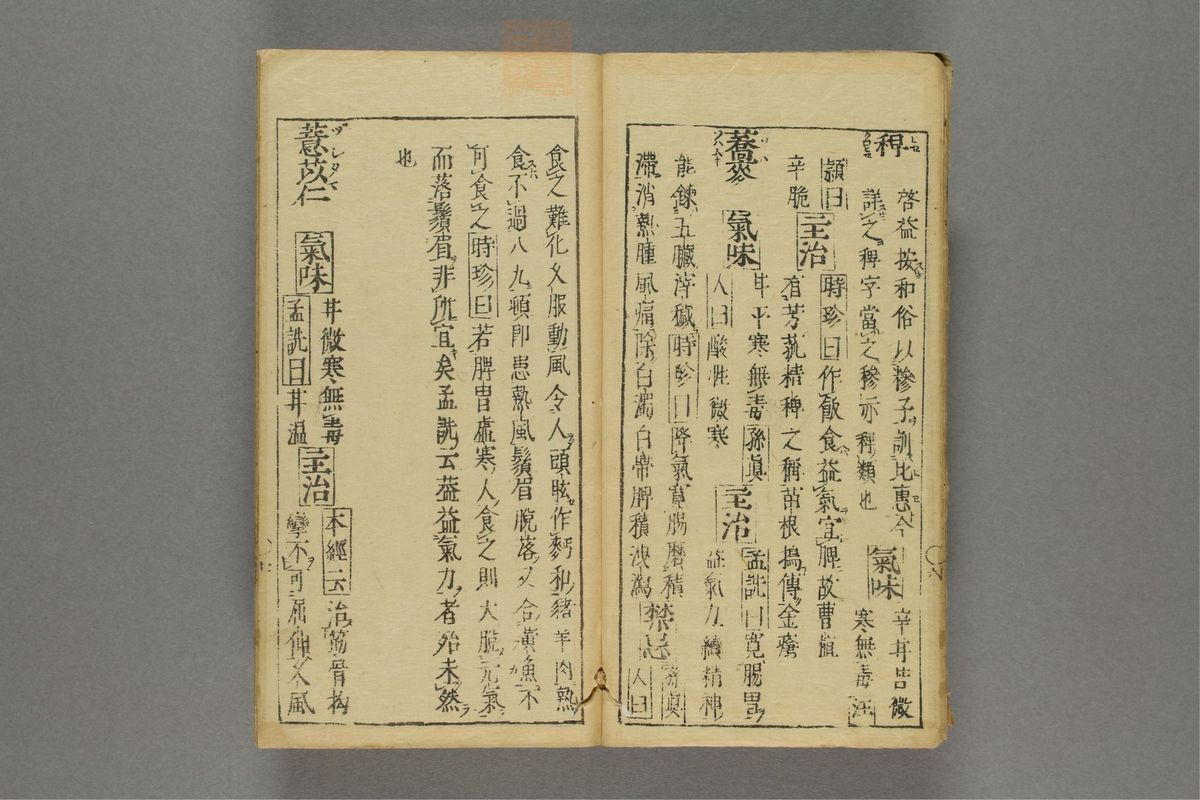 稗
啓益按和俗以穇子訓比惠今
詳之稗字當之穇亦稗類也
氣味
辛甘苦微
寒無毒汪
頴曰
辛脆
主治
時珍曰作飯食益氣宜脾故曹植
有芳菰精稗之稱苗根搗傅金瘡
蕎麥
氣味
甘平寒無毒孫眞
人曰酸性微寒
主治
孟詵曰寛腸胃
益氣力續精神
能錬五臟滓穢時珍曰降氣寛腸磨積
滯消熱腫風痛除白濁白帶脾積洩瀉
禁忌
孫眞
人曰
食之難化久服動風令人頭眩作麪和豬羊肉熟
食不過八九頓即患熱風鬚眉脫落又合黄魚不
可食之時珍曰若脾胃虚寒人食之則大脫元氣
而落鬚眉非所宜矣孟詵云益氣力者殆未然
也
薏苡仁
氣味
甘微寒無毒
孟詵曰甘温
主治
本經云治筋骨拘
攣不可屈伸久風